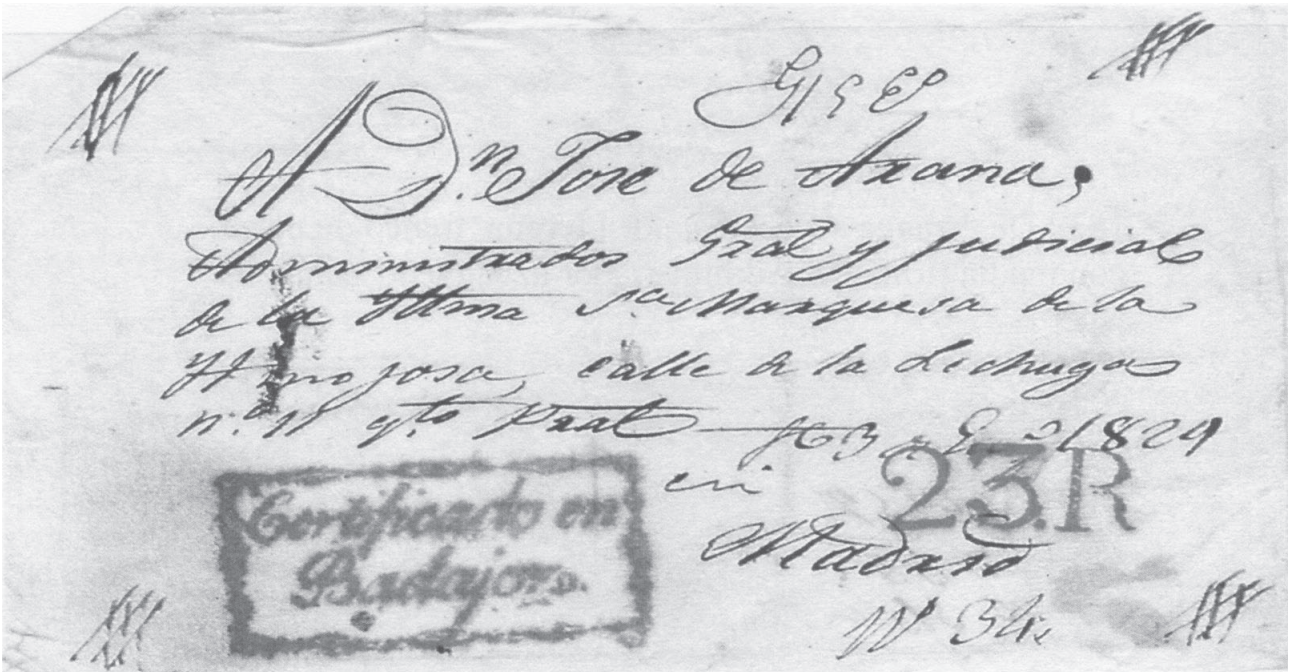 A D.n Jose de Arana,
Administrador Gral y judicial
de la Yltma S.ra Marquesa de la
Hinojosa, calle de la Lechuga
n.o 11 q.to Pral
1829
en
Madrid
23.R
Certificado en
Badajoz.
N 34